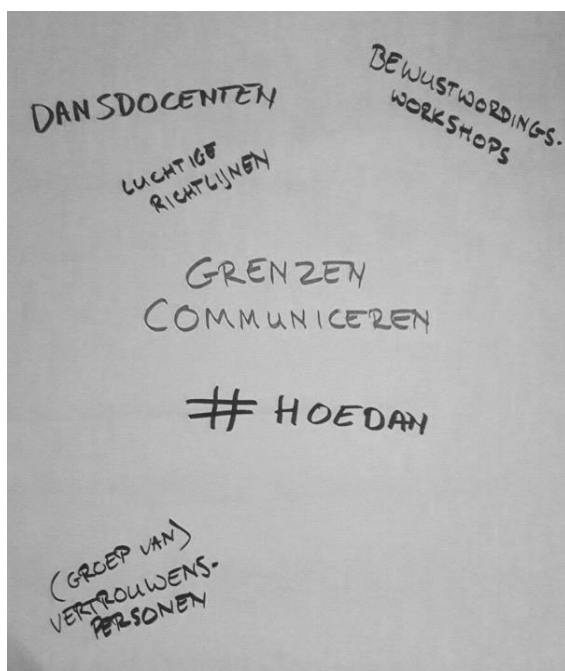 DANSDOCENTEN
BEWUSTWORDINGS-
WORKSHOPS
LUCHTIGE
RICHTLIJNEN
GRENZEN
COMMUNICEREN
# HOEDAN
(GROEP VAN)
VERTROUWENS-
PERSONEN